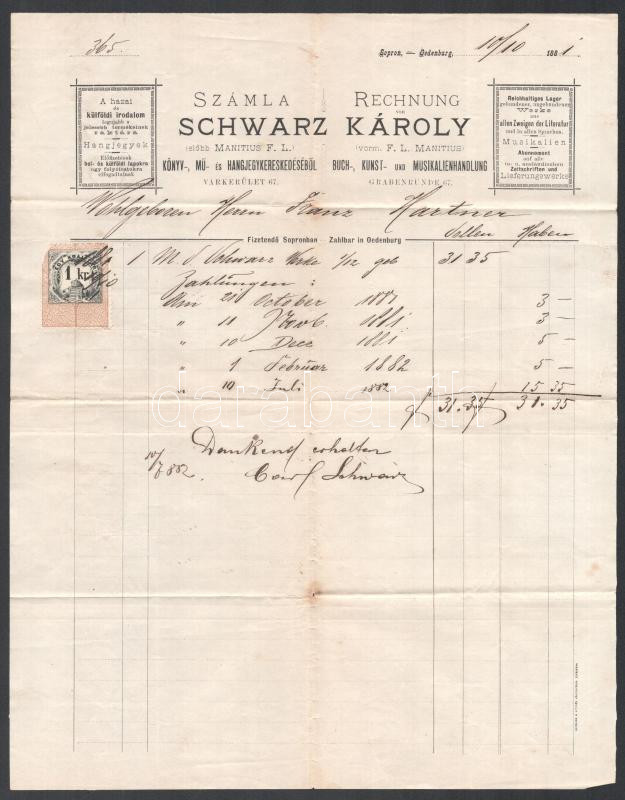 365.
Sopron, — Oedenburg, 10/10 1881.
A hazai
és
külföldi irodalom
legújabb s
jelesebb termékeinek
raktára
Hangjegyek
Előfizetések
bel- és külföldi lapokra
úgy folyóiratokra
elfogadtatnak
SZÁMLA
RECHNUNG
von
SCHWARZ KÁROLY
(előbb MANITIUS F. L.)
(vorm. F. L. MANITIUS)
KÖNYV-, MŰ- ÉS HANGJEGYKERESKEDÉSÉBŐL
BUCH-, KUNST- UND MUSIKALIENHANDLUNG
VÁRKERÜLET 67.
GRABENRUNDE 67.
Reichhaltiges Lager
gebundener, ungebundener
Werke
aus
allen Zweigen der Literatur
und in allen Sprachen.
Musikalien
Abonnement
auf alle
in- u. ausländischen
Zeitschriften und
Lieferungswerke
Wohlgeboren Herrn Franz Hartner
Sollen Haben
Fizetendő Sopronban — Zahlbar in Oedenburg
1 kr.
1 M. S. Schwarz Werke 1/12 geb 31 35
Zahlungen:
Am 21 October 1881 3 —
" 11 Novb. 1881 3 —
" 10 Dece 1881 5 —
" 1 Februar 1882 5 —
" 10 Juli 1882 15 35
31.35 31.35
Dankend erhalten
10/7 882. Carl Schwarz
darabanth